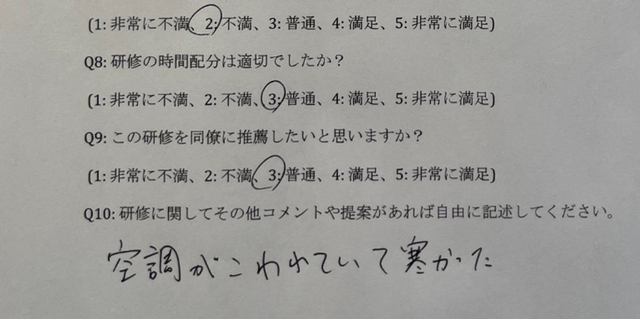 (1: 非常に不満、2: 不満、3: 普通、4: 満足、5: 非常に満足)
Q8: 研修の時間配分は適切でしたか？
(1: 非常に不満、2: 不満、3: 普通、4: 満足、5: 非常に満足)
Q9: この研修を同僚に推薦したいと思いますか？
(1: 非常に不満、2: 不満、3: 普通、4: 満足、5: 非常に満足)
Q10: 研修に関してその他コメントや提案があれば自由に記述してください。
空調がこわれていて寒かった